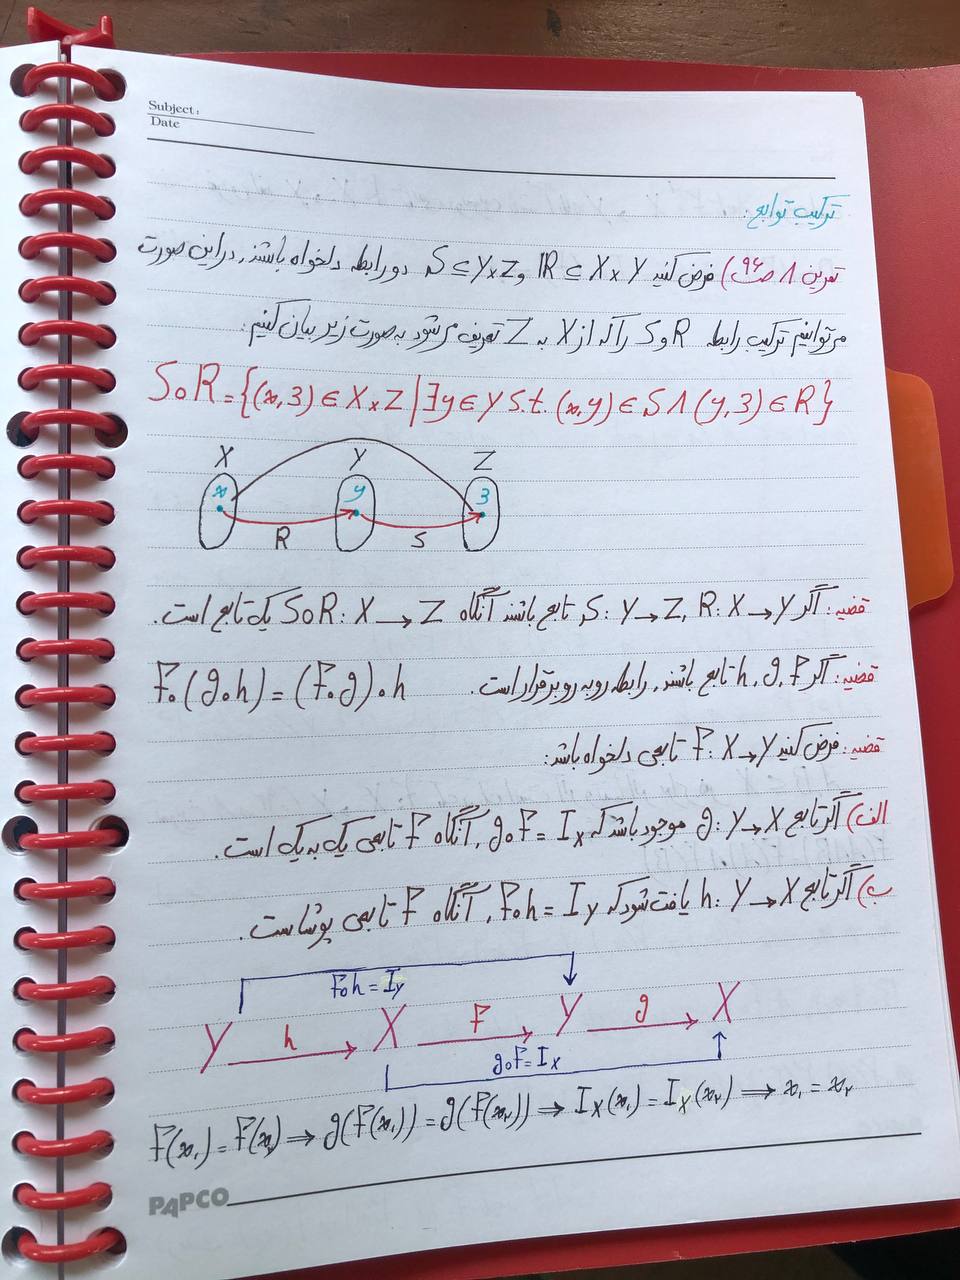 Subject:
Date
ترکیب توابع:
تمرین ۸ صـ۹۶) فرض کنید R ⊆ X×Y و S ⊆ Y×Z دو رابطه دلخواه باشند, در این صورت
می‌توانیم ترکیب رابطه R و S را که از X به Z تعریف می‌شود به صورت زیر بیان کنیم:
SoR = {(x,z) ∈ X×Z | ∃y ∈ Y s.t. (x,y) ∈ S ∧ (y,z) ∈ R}
X Y Z
x y z
R S
قضیه: اگر R: X → Y, S: Y → Z تابع باشند آنگاه SoR: X → Z یک تابع است.
قضیه: اگر f, g, h تابع باشند, رابطه روبه رو برقرار است. fo(goh) = (fog)oh
قضیه: فرض کنید f: X → Y تابعی دلخواه باشد:
الف) اگر تابع g: Y → X موجود باشد که gof = I_X, آنگاه f تابعی یک به یک است.
ب) اگر تابع h: Y → X یافت شود که foh = I_Y, آنگاه f تابعی پوشاست.
foh = I_Y
Y h X f Y g X
gof = I_X
f(x₁) = f(x₂) ⇒ g(f(x₁)) = g(f(x₂)) ⇒ I_X(x₁) = I_X(x₂) ⇒ x₁ = x₂
PAPCO